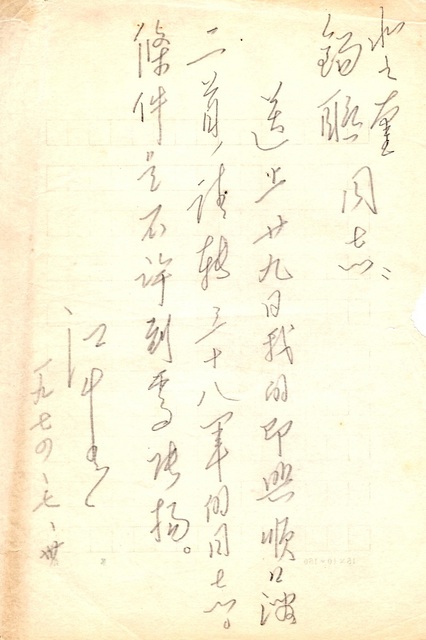 登奎
锡联 同志:
送上廿九日我的即照顺口溜
二首,请转三十八军的同志。
條件是不许到处张扬。
江青
一九七四、七、卅